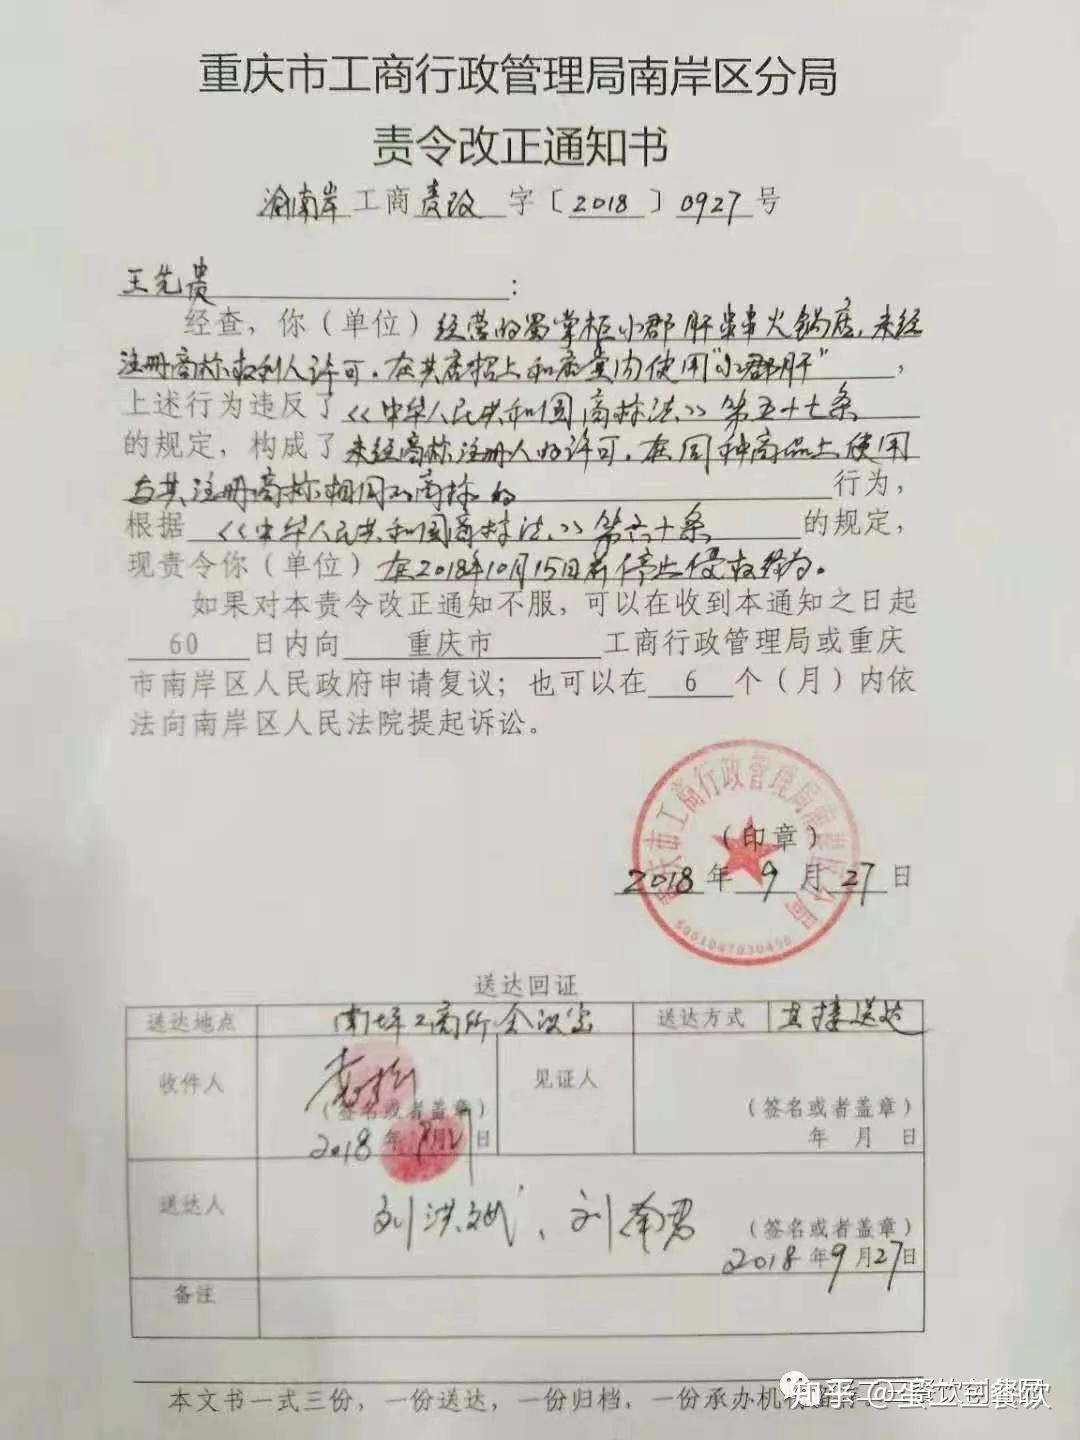 重庆市工商行政管理局南岸区分局
责令改正通知书
渝南岸 工商 责改 字〔 2018 〕0927 号
王先贵 ：
经查，你（单位）经营的蜀掌柜小郡肝串串火锅店，未经
注册商标权利人许可，在其店招上和店堂内使用"小郡肝" ，
上述行为违反了《中华人民共和国商标法》第五十七条
的规定，构成了未经商标注册人的许可，在同种商品上使用
与其注册商标相同的商标的 行为，
根据《中华人民共和国商标法》第六十条 的规定，
现责令你（单位）在2018年10月15日前停止侵权行为。
如果对本责令改正通知不服，可以在收到本通知之日起
60 日内向 重庆市 工商行政管理局或重庆
市南岸区人民政府申请复议；也可以在 6 个（月）内依
法向南岸区人民法院提起诉讼。
重庆市工商行政管理局南岸区分局
（印章）
2018 年 9 月 27 日
5001047030456
送达回证
送达地点 南坪工商所会议室 送达方式 直接送达
收件人 见证人
（签名或者盖章） （签名或者盖章）
2018 年 月 日 年 月 日
送达人 刘洪斌、刘南君 （签名或者盖章）
2018 年9 月27日
备注
本文书一式三份，一份送达，一份归档，一份承办机构留存
知乎 @蛋二三餐饮创餐饮